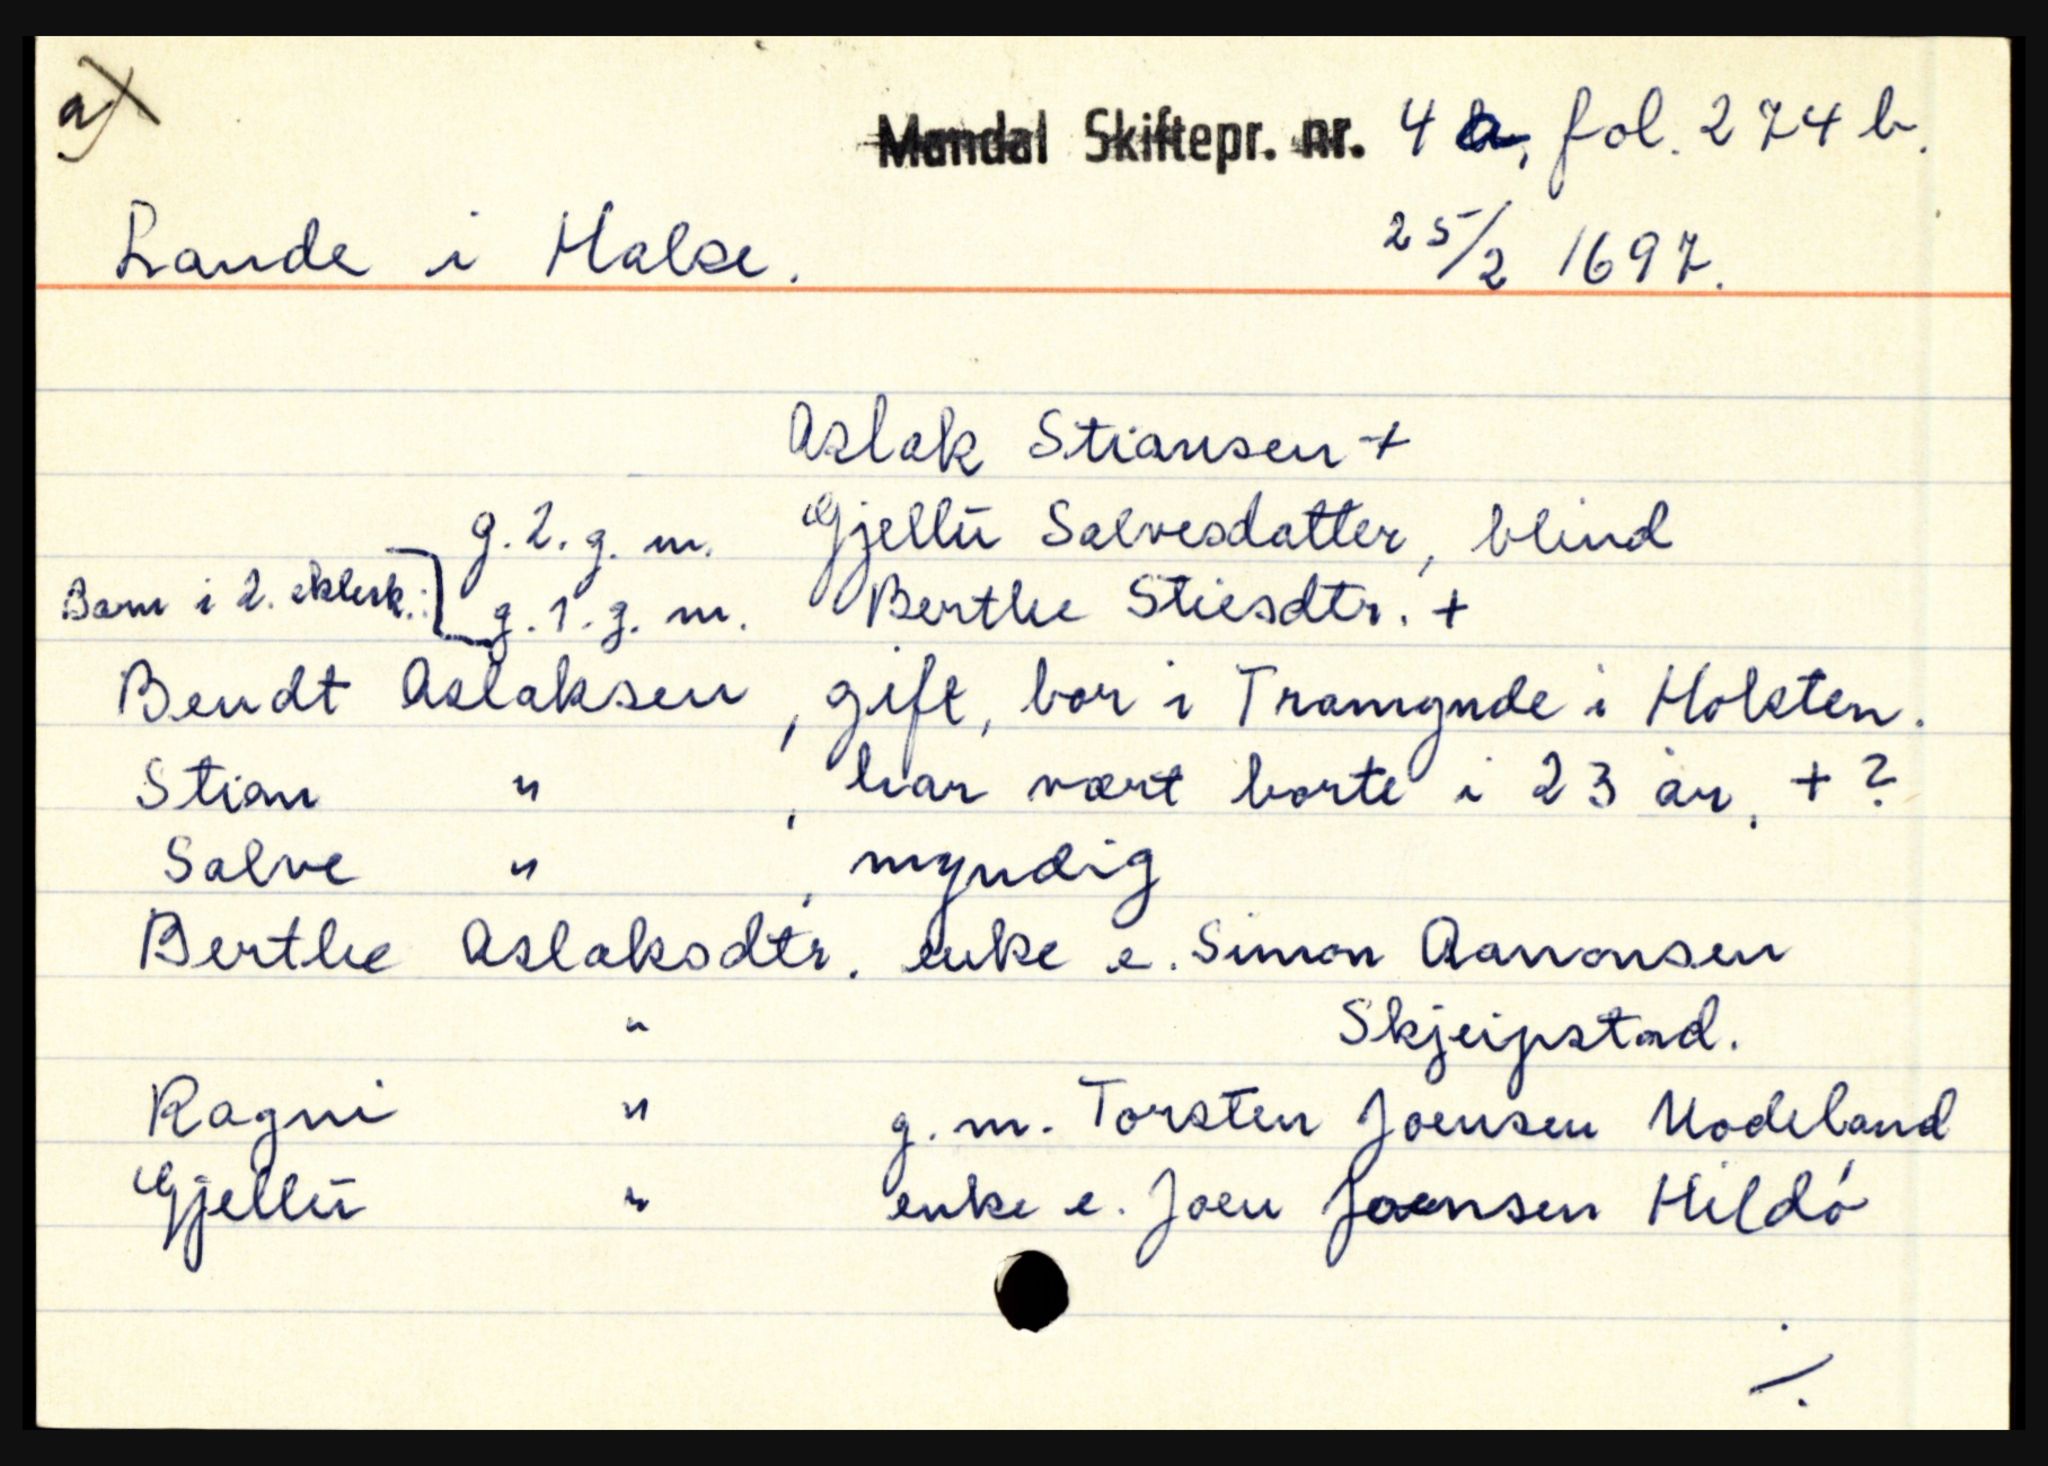 a)
Mandal Skiftepr. nr. 4 a, fol. 274 b.
Lande i Halse. 25/2 1697.
Aslak Stiansen +
g. 2. g. m. Gjellu Salvesdatter, blind
Barn i 2. ektesk.: g. 1. g. m. Berthe Stiesdtr. +
Bendt Aslaksen, gift, bor i Tramynde i Holsten.
Stian " , har vært borte i 23 år. + ?
Salve " , myndig
Berthe Aslaksdtr. enke e. Simon Aanonsen
" Skjeipstad.
Ragni " g. m. Torsten Joensen Nodeland
Gjellu " enke e. Joen Joensen Hildó
./.